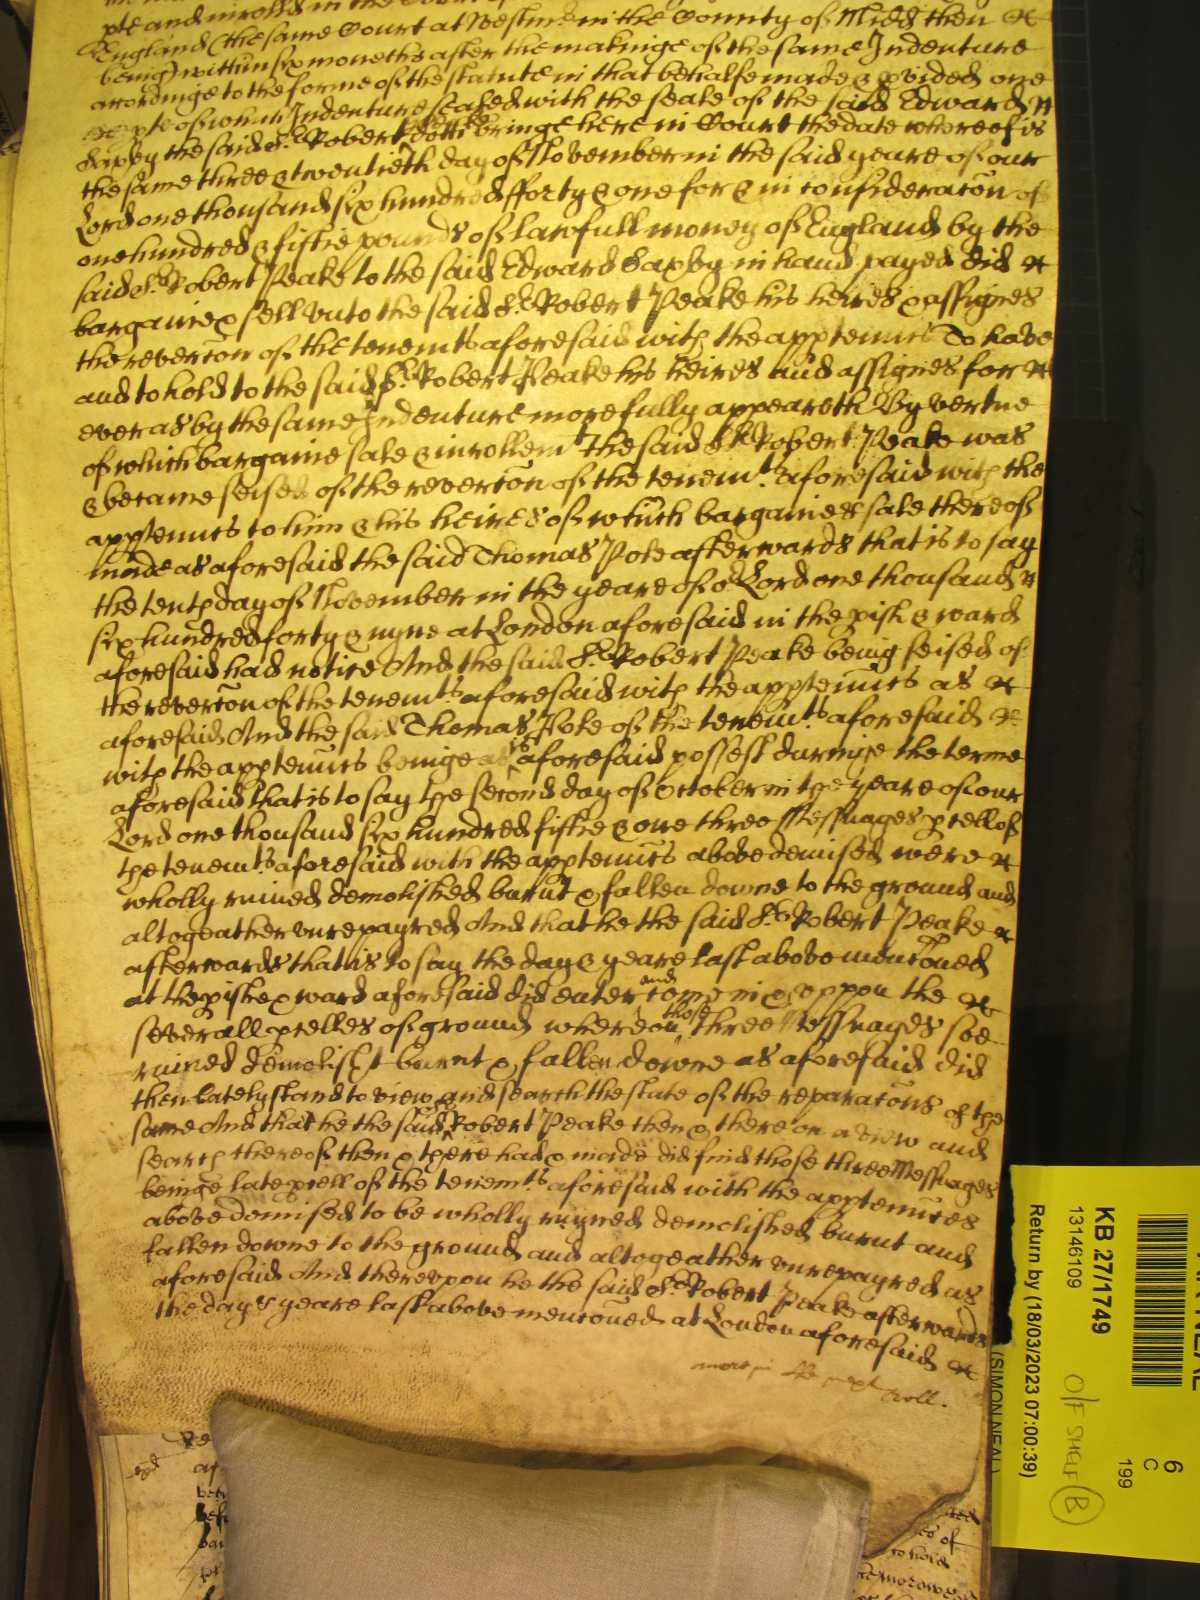 pte and inrolled in the Court of
England (the same Court at Westmr in the County of Midd then
being) within six moneths after the makinge of the same Indenture
accordinge to the forme of the statute in that behalfe made & pvided one
pte of which Indenture sealed with the seale of the said Edward
Saxby the said Sr. Robert Peake doth bringe here in Court the date whereof is
the same three & twentieth day of November in the said yeare of our
Lord one thousand six hundred fforty & one for & in consideracon of
one hundred & fiftie pounds of lawfull money of England by the
said Sr. Robert Peake to the said Edward Saxby in hand payed did
bargaine & sell vnto the said Sr. Robert Peake his heires & assignes
the revercon of the tenemts aforesaid with the apptenncs To have
and to hold to the said Sr. Robert Peake his heires and assignes for
ever as by the same Indenture more fully appeareth By vertue
of which bargaine sale & inrollemt the said Sr. Robert Peake was
& became seised of the revercon of the tenemts. aforesaid with the
apptenncs to him & his heires of which bargaine & sale thereof
made as aforesaid the said Thomas Pote afterwards that is to say
the tenth day of November in the yeare of or Lord one thousand
six hundred forty & nyne at London aforesaid in the pish & ward
aforesaid had notice And the said Sr. Robert Peake being seised of
the revercon of the tenemts. aforesaid with the apptenncs as
aforesaid And the said Thomas Pote of the tenemts. aforesaid
with the apptenncs beinge as is aforesaid possest duringe the terme
aforesaid that is to say the second day of October in the yeare of our
Lord one thousand six hundred fiftie & one three Messuages pcell of
the tenemts. aforesaid with the apptenncs above demised were
wholly ruined demolished burnt & fallen downe to the ground and
altogeather vnrepayred And that he the said Sr. Robert Peake
afterwards that is to say the day & yeare last above mencioned
at the pishe & ward aforesaid did enter and come in & vppon the
severall pcelles of ground whereon those three Messuages soe
ruined demolisht burnt & fallen downe as aforesaid did
then lately stand to view and search the state of the reparacons of the
same And that he the said Sr Robert Peake then & there on a view and
search thereof then & there had & made did find those three Messuages
beinge late pcell of the tenemts aforesaid with the apptennces
above demised to be wholly ruyned demolished burnt and
fallen downe to the ground and altogeather vnrepayred as
aforesaid And therevpon he the said Sr. Robert Peake afterwards
the day & yeare last above mencioned at London aforesaid
more in the next roll.
KB 27/1749
13146109
Return by (18/03/2023 07:00:39)
(SIMON NEAL)
6
C
199
O/F SHELF B